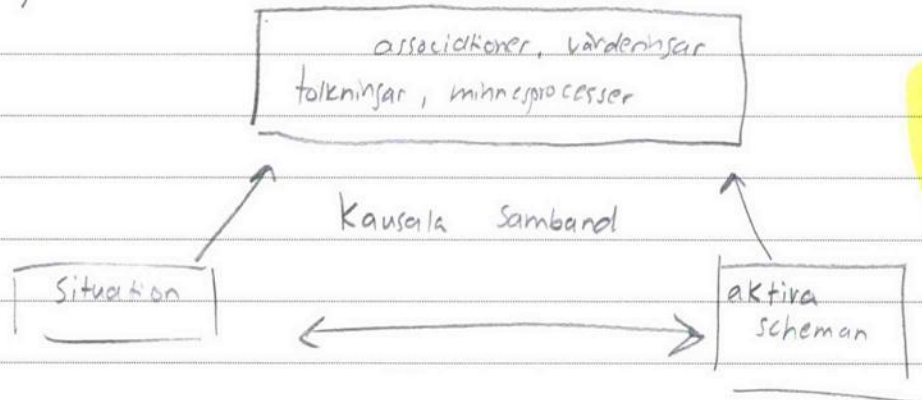 associationer, värderingar
tolkningar, minnesprocesser
Kausala Samband
Situation
aktiva
scheman